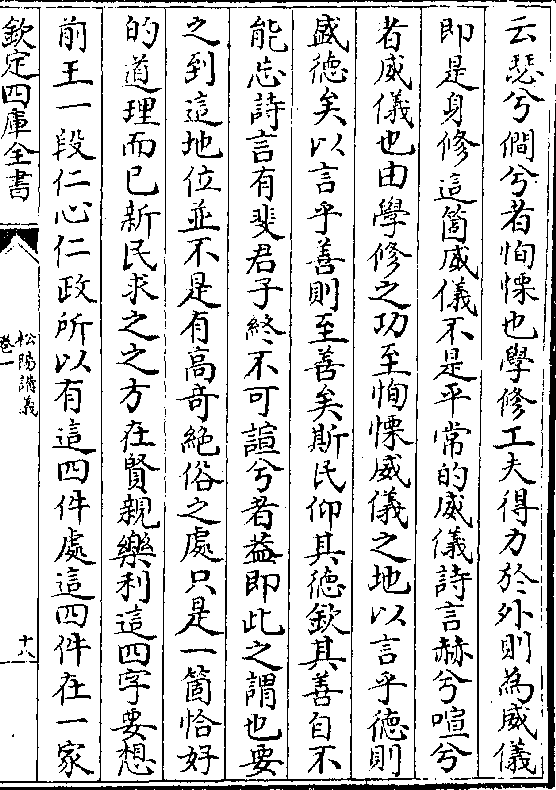 云瑟兮僩兮者恂慄也學修工夫得力於外則為威儀
即是身修這箇威儀不是平常的威儀詩言赫兮喧兮
者威儀也由學修之功至恂慄威儀之地以言乎德則
盛德矣以言乎善則至善矣斯民仰其德欽其善自不
能忘詩言有斐君子終不可諠兮者葢即此之謂也要
之到這地位並不是有高竒絶俗之處只是一箇恰好
的道理而已新民求之之方在賢親樂利這四字要想
前王一段仁心仁政所以有這四件處這四件在一家
欽定四庫全書
松陽講義
卷一
十八